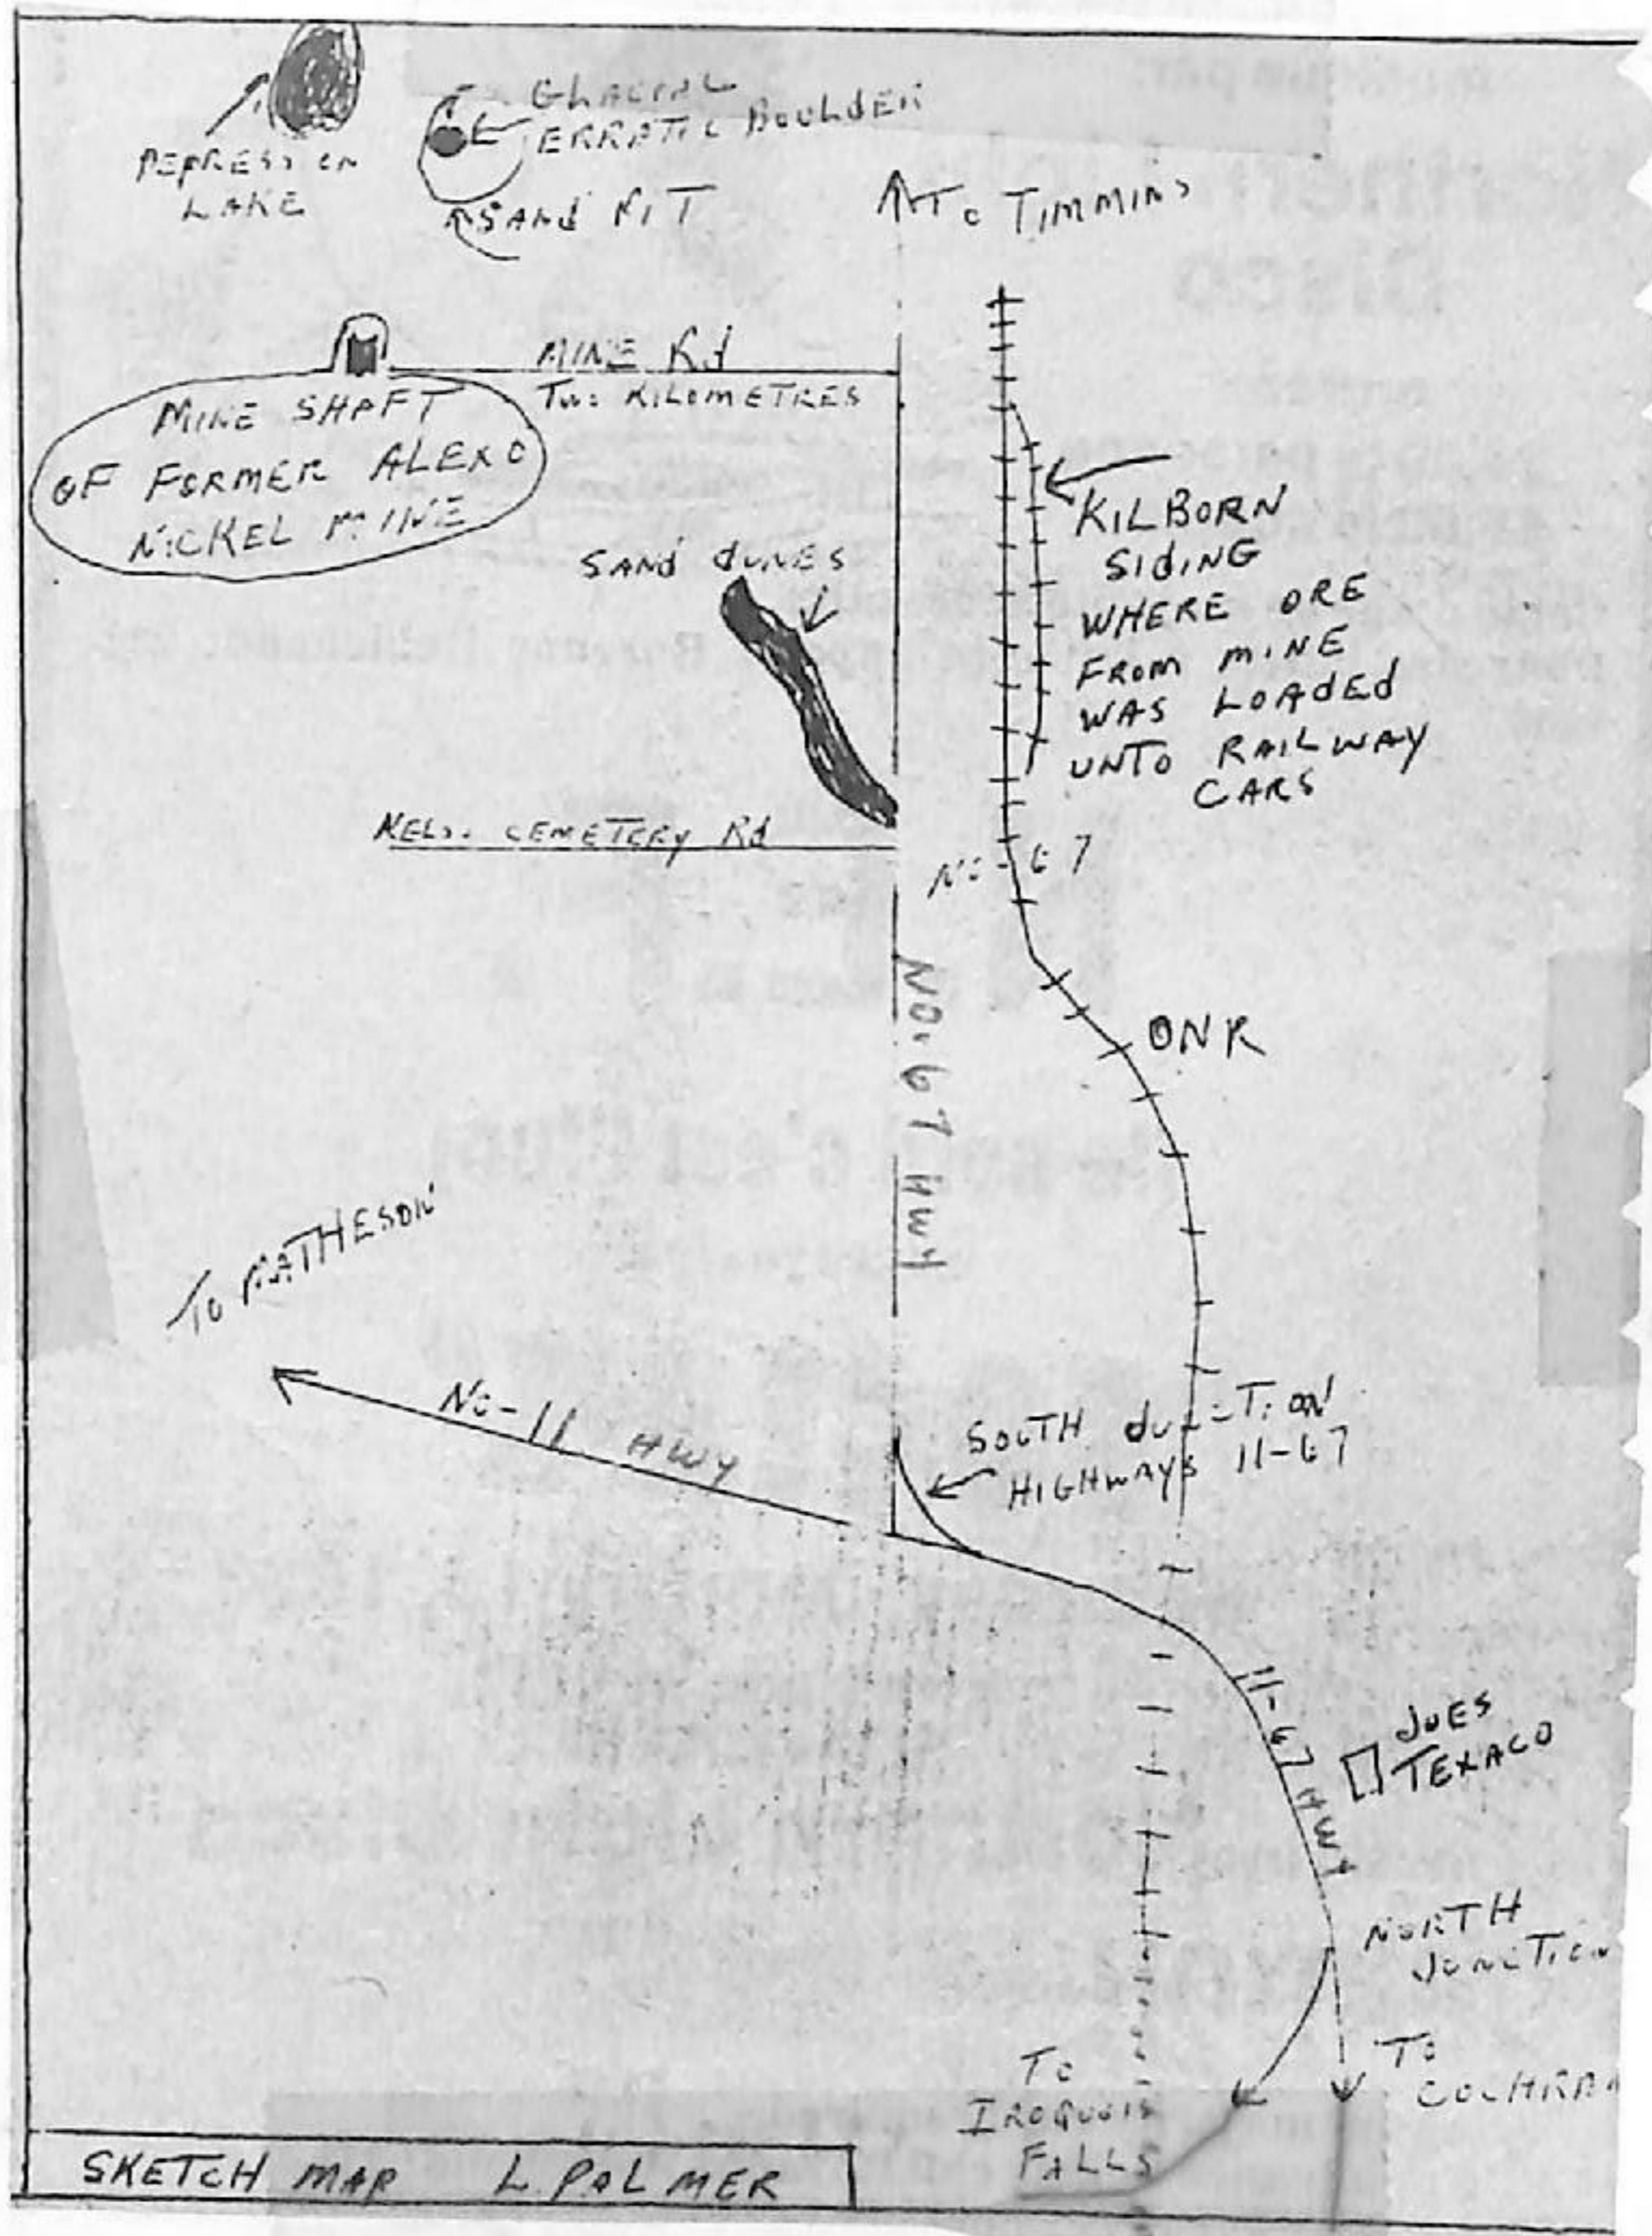 GLACIAL
ERRATIC BOULDER
DEPRESSION
LAKE
SAND PIT
TO TIMMINS
MINE Rd
TWO KILOMETRES
MINE SHAFT
OF FORMER ALEXO
NICKEL MINE
KILBORN
SIdING
WHERE ORE
FROM MINE
WAS LOAdEd
UNTO RAILWAY
CARS
SANd dUNES
CEMETERY Rd
NO-67
NO. 67 HWY
ONR
TO MATHESON
NO-11 HWY
SOUTH JUNCTION
HIGHWAYS 11-67
11-67 HWY
JOES
TEXACO
NORTH
JUNCTION
TO
IROQUOIS
FALLS
TO
COCHRA
SKETCH MAP L. PALMER